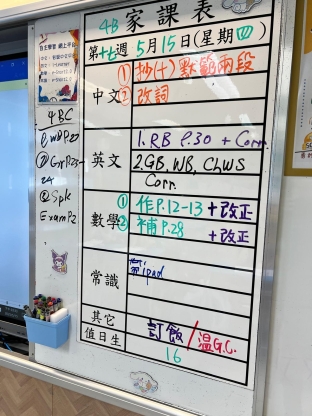 4B 家課表
第十七週 5月15日(星期四)
中文
① 抄(十)默範兩段
② 改詞
英文
1. RB P.30 + Corr.
2. GB, WB, ChWS
Corr.
數學
① 作P.12-13 +改正
② 補P.28 +改正
常識
帶ipad
其它
訂飯/溫G.C.
值日生
16
4BC
24
② Spk
Exam P2